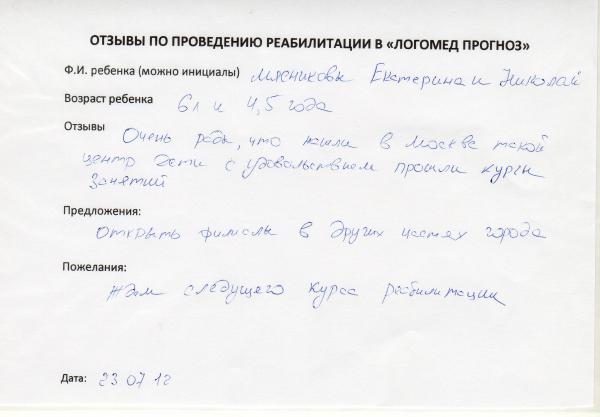 ОТЗЫВЫ ПО ПРОВЕДЕНИЮ РЕАБИЛИТАЦИИ В «ЛОГОМЕД ПРОГНОЗ»
Ф.И. ребенка (можно инициалы) Мясниковы Екатерина и Николай
Возраст ребенка 6 л и 4,5 года
Отзывы Очень рады, что нашли в Москве такой
центр дети с удовольствием прошли курсы
занятий
Предложения:
открыть филиалы в других частях города
Пожелания:
Ждем следущего курса реабилитации
Дата: 23 07 12